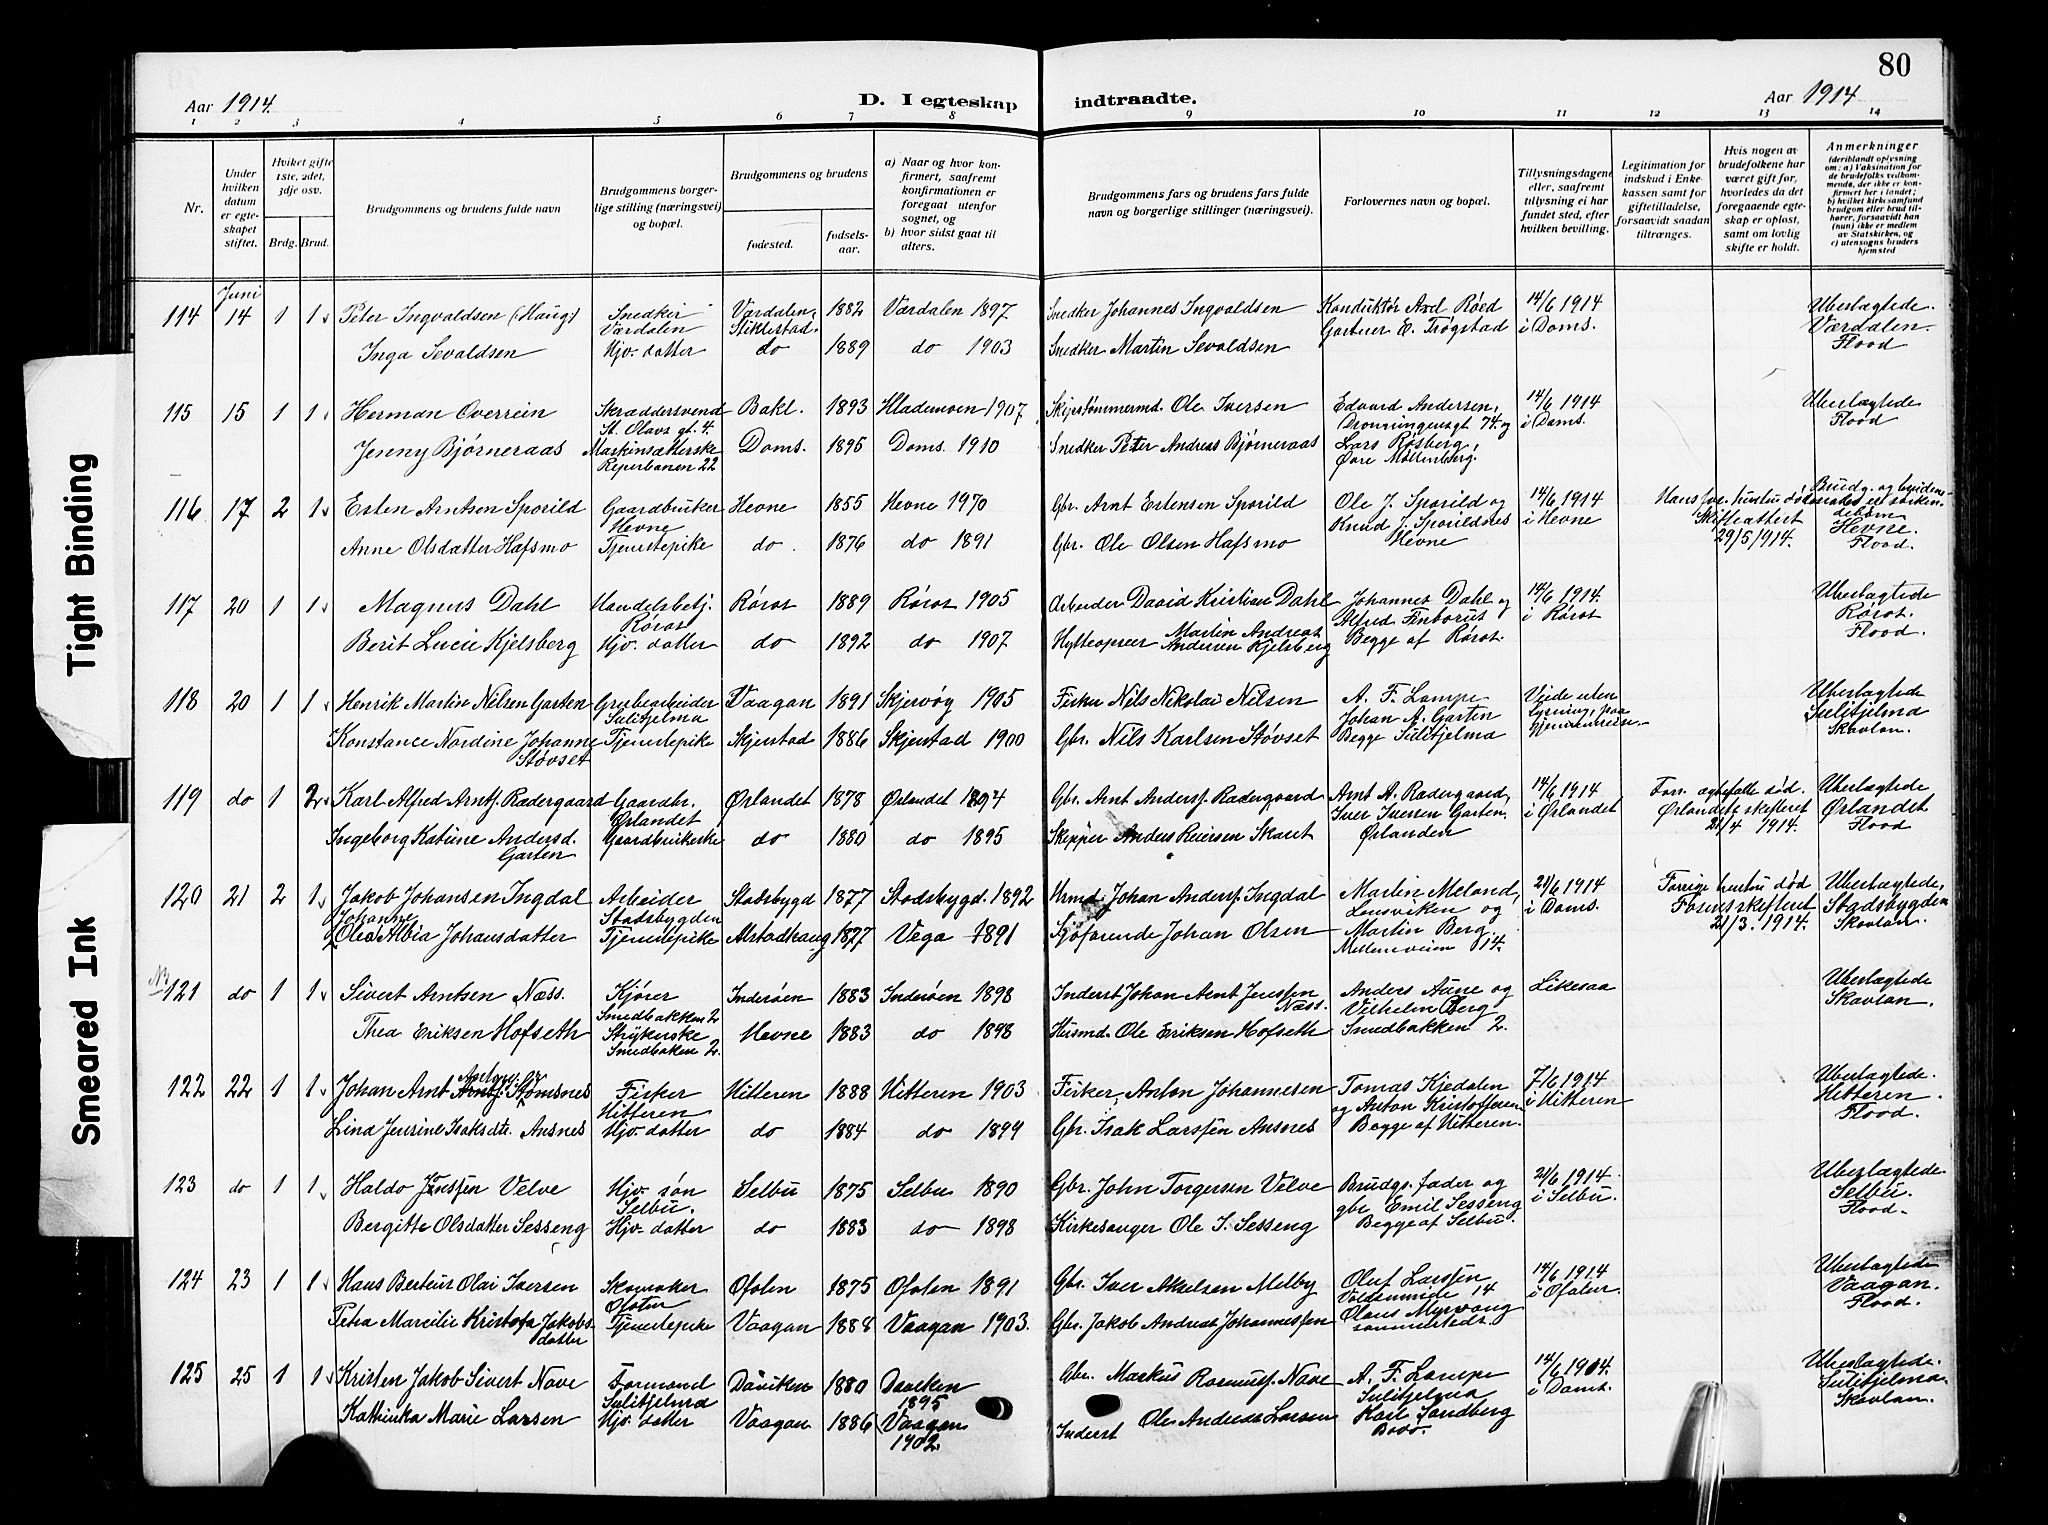 80
Aar 1914.
D. I egteskap indtraadte.
Aar 1914
1 2 3 4 5 6 7 8 9 10 11 12 13 14
Nr.
Under hvilken datum er egteskapet stiftet.
Hviket gifte 1ste, 2det, 3dje osv.
Brdg. Brud.
Brudgommens og brudens fulde navn
Brudgommens borgerlige stilling (næringsvei) og bopæl.
Brudgommens og brudens
fødested.
fødselsaar.
a) Naar og hvor konfirmert, saafremt konfirmationen er foregaat utenfor sognet, og
b) hvor sidst gaat til alters.
Brudgommens fars og brudens fars fulde navn og borgerlige stillinger (næringsvei).
Forlovernes navn og bopæl.
Tillysningsdagene eller, saafremt tillysning ei har fundet sted, efter hvilken bevilling.
Legitimation for indskud i Enkekassen samt for giftetilladelse, forsaavidt saadan tiltrænges.
Hvis nogen av brudefolkene har været gift før, hvorledes da det foregaaende egteskap er opløst, samt om lovlig skifte er holdt.
Anmerkninger (deriblandt oplysning om: a) Vaksination for de brudefolks vedkommende, der ikke er konfirmert her i landet; b) hvilket kirkesamfund brudgom eller brud tilhører, forsaavidt han (hun) ikke er medlem av Statskirken, og c) utensogns bruders hjemsted
Juni
114 14 1 1 Peter Ingvaldsen (Haug) Snedker Værdalen Værdalen, Stiklestad. 1882 Værdalen 1897 Snedker Johannes Ingvaldsen Konduktør Axel Røed Gartner E. Trøgstad 14/6 1914 i Doms. Ubeslægtede. Værdalen. Flood
Inga Sevaldsen Hjv. datter do 1889 do 1903 Snedker Martin Sevaldsen
115 15 1 1 Herman Overrein Skræddersvend St. Olavs gt. 4. Bakl. 1893 Hlademoen 1907 Skipstømmermd. Ole Iversen Edvard Andersen, Dronningensgt 74. og 14/6 1914 i Doms. Ubeslægtede Flood
Jenny Bjørneraas Maskinsætterske Reperbanen 22 Doms. 1895 Doms. 1910 Snedker Peter Andreas Bjørneraas Lars Rösberg, Øvre Møllenberg.
116 17 2 1 Esten Arntsen Sporild Gaardbruker Hevne Hevne 1855 Hevne 1970 Gbr. Arnt Estensen Sporild Ole J. Sporild og Knud J. Sporildnes Hevne 14/6 1914 i Hevne Skifteattest 29/5 1914. Hevne. Flood.
Anne Olsdatter Hafsmo Tjenestepike do. 1876 do 1891 Gbr. Ole Olsen Hafsmo
117 20 1 1 Magnus Dahl Handelsbetj. Røros Røros 1889 Røros 1905 Arbeider David Kristian Dahl Johannes Dahl og Alfred Finborud Begge af Røros. 14/6 1914. i Røros Ubeslægtede Røros. Flood.
Berit Lucie Kjelsberg Hjv. datter do 1892 do 1907 Martin Andreas Andersen Kjelsberg
118 20 1 1 Henrik Martin Nilsen Garten Grubearbeider Sulitjelma Vaagan 1891 Skjervøy 1905 Fisker Nils Nikolai Nilsen A. F. Lampe Johan A. Garten Begge Sulitjelma Ubeslægtede Sulitjelma Skavlan.
Konstance Nordine Johanne Støvset Tjenestepike Skjerstad 1886 Skjerstad 1900 Gbr. Nils Karlsen Støvset
119 do 1 2 Karl Alfred Arntsf. Radergaard Gaardbr. Ørlandet Ørlandet 1878 Ørlandet 1894 Gbr. Arnt Andersf. Radergaard Arnt A. Radergaard, Iver Iversen Garten, Ørlandet 14/6 1914 i Ørlandet Ørlandets skifteret 21/4 1914. Ubeslægtede Ørlandet Flood
Ingeborg Katrine Andersd. Garten Gaardbrukerske do 1880 do 1895 Skipper Anders Reiersen Skaret
120 21 2 1 Jakob Johansen Ingdal Arbeider Stadsbygden Stadsbygd 1877 Stadsbygd. 1892 Johan Andersf. Ingdal Martin Meland, Lensviken og Martin Berg. Mellemveien 14. 21/6 1914 i Doms. Forrige hustru død 21/3. 1914. Ubeslægtede, Stadsbygden Skavlan.
Johanne Olea Albia Johansdatter Tjenestepike Alstadhaug 1877 Vega 1891 Sjøfarende Johan Olsen
121 do 1 1 Sivert Arntsen Næss. Kjører Smedbakken 2 Inderøen 1883 Inderøen 1898 Inderst Johan Arnt Jenssen Næss. Anders Aune og Vilhelm Berg Smedbakken 2. Likesaa Ubeslægtede Skavlan.
Thea Eriksen Hofseth Strykerske Smedbakken 2. Hevne 1883 do 1898 Husmd. Ole Eriksen Hofseth
122 22 1 1 Johan Arnt Fisker Hitteren Hitteren 1888 Hitteren 1903 Fisker Anton Johannesen Tomas Kjedalen og Anton Kristoffersen Begge af Hitteren. 7/6 1914 i Hitteren Ubeslægtede. Hitteren. Flood.
Lina Jensine Isaksdtr. Ansnes Hjv. datter do 1884 do 1899 Gbr. Isak Larssen Ansnes
123 do 1 1 Haldo Jenssen Velve Hjv. søn Selbu. Selbu 1875 Selbu 1890 Gbr. John Torgersen Velve Brudgs. fader og gbr. Emil Sesseng Begge af Selbu. 21/6 1914 i Selbu. Ubeslægtede Selbu. Flood.
Bergitte Olsdatter Sesseng Hjv. datter do 1883 do 1898 Kirkesanger Ole I. Sesseng
124 23 1 1 Hans Berteus Olai Iversen Skomaker Ofoten Ofoten 1875 Ofoten 1891 Gbr. Iver Akselsen Melby Oluf Larssen Voldsminde 14 Olaus Myrvang sammesteds. 14/6 1914 i Ofoten. Ubeslægtede Vaagan. Flood.
Petra Marcelie Kristofa Jakobsdatter Tjenestepike Vaagan 1888 Vaagan 1903. Gbr. Jakob Andreas Johannessen
125 25 1 1 Kristen Jakob Sivert Nave Formand Sulitjelma Daviken 1880 Daviken 1895 Gbr. Markus Rasmusf. Nave A. F. Lampe Sulitjelma Karl Sandberg Bodø. 14/6 1914. i Doms. Ubeslægtede. Sulitjelma. Skavlan.
Kathinka Marie Larsen Hjv. datter Vaagan 1886 Vaagan 1902. Inderst Ole Andreas Larsen
Tight Binding
Smeared Ink